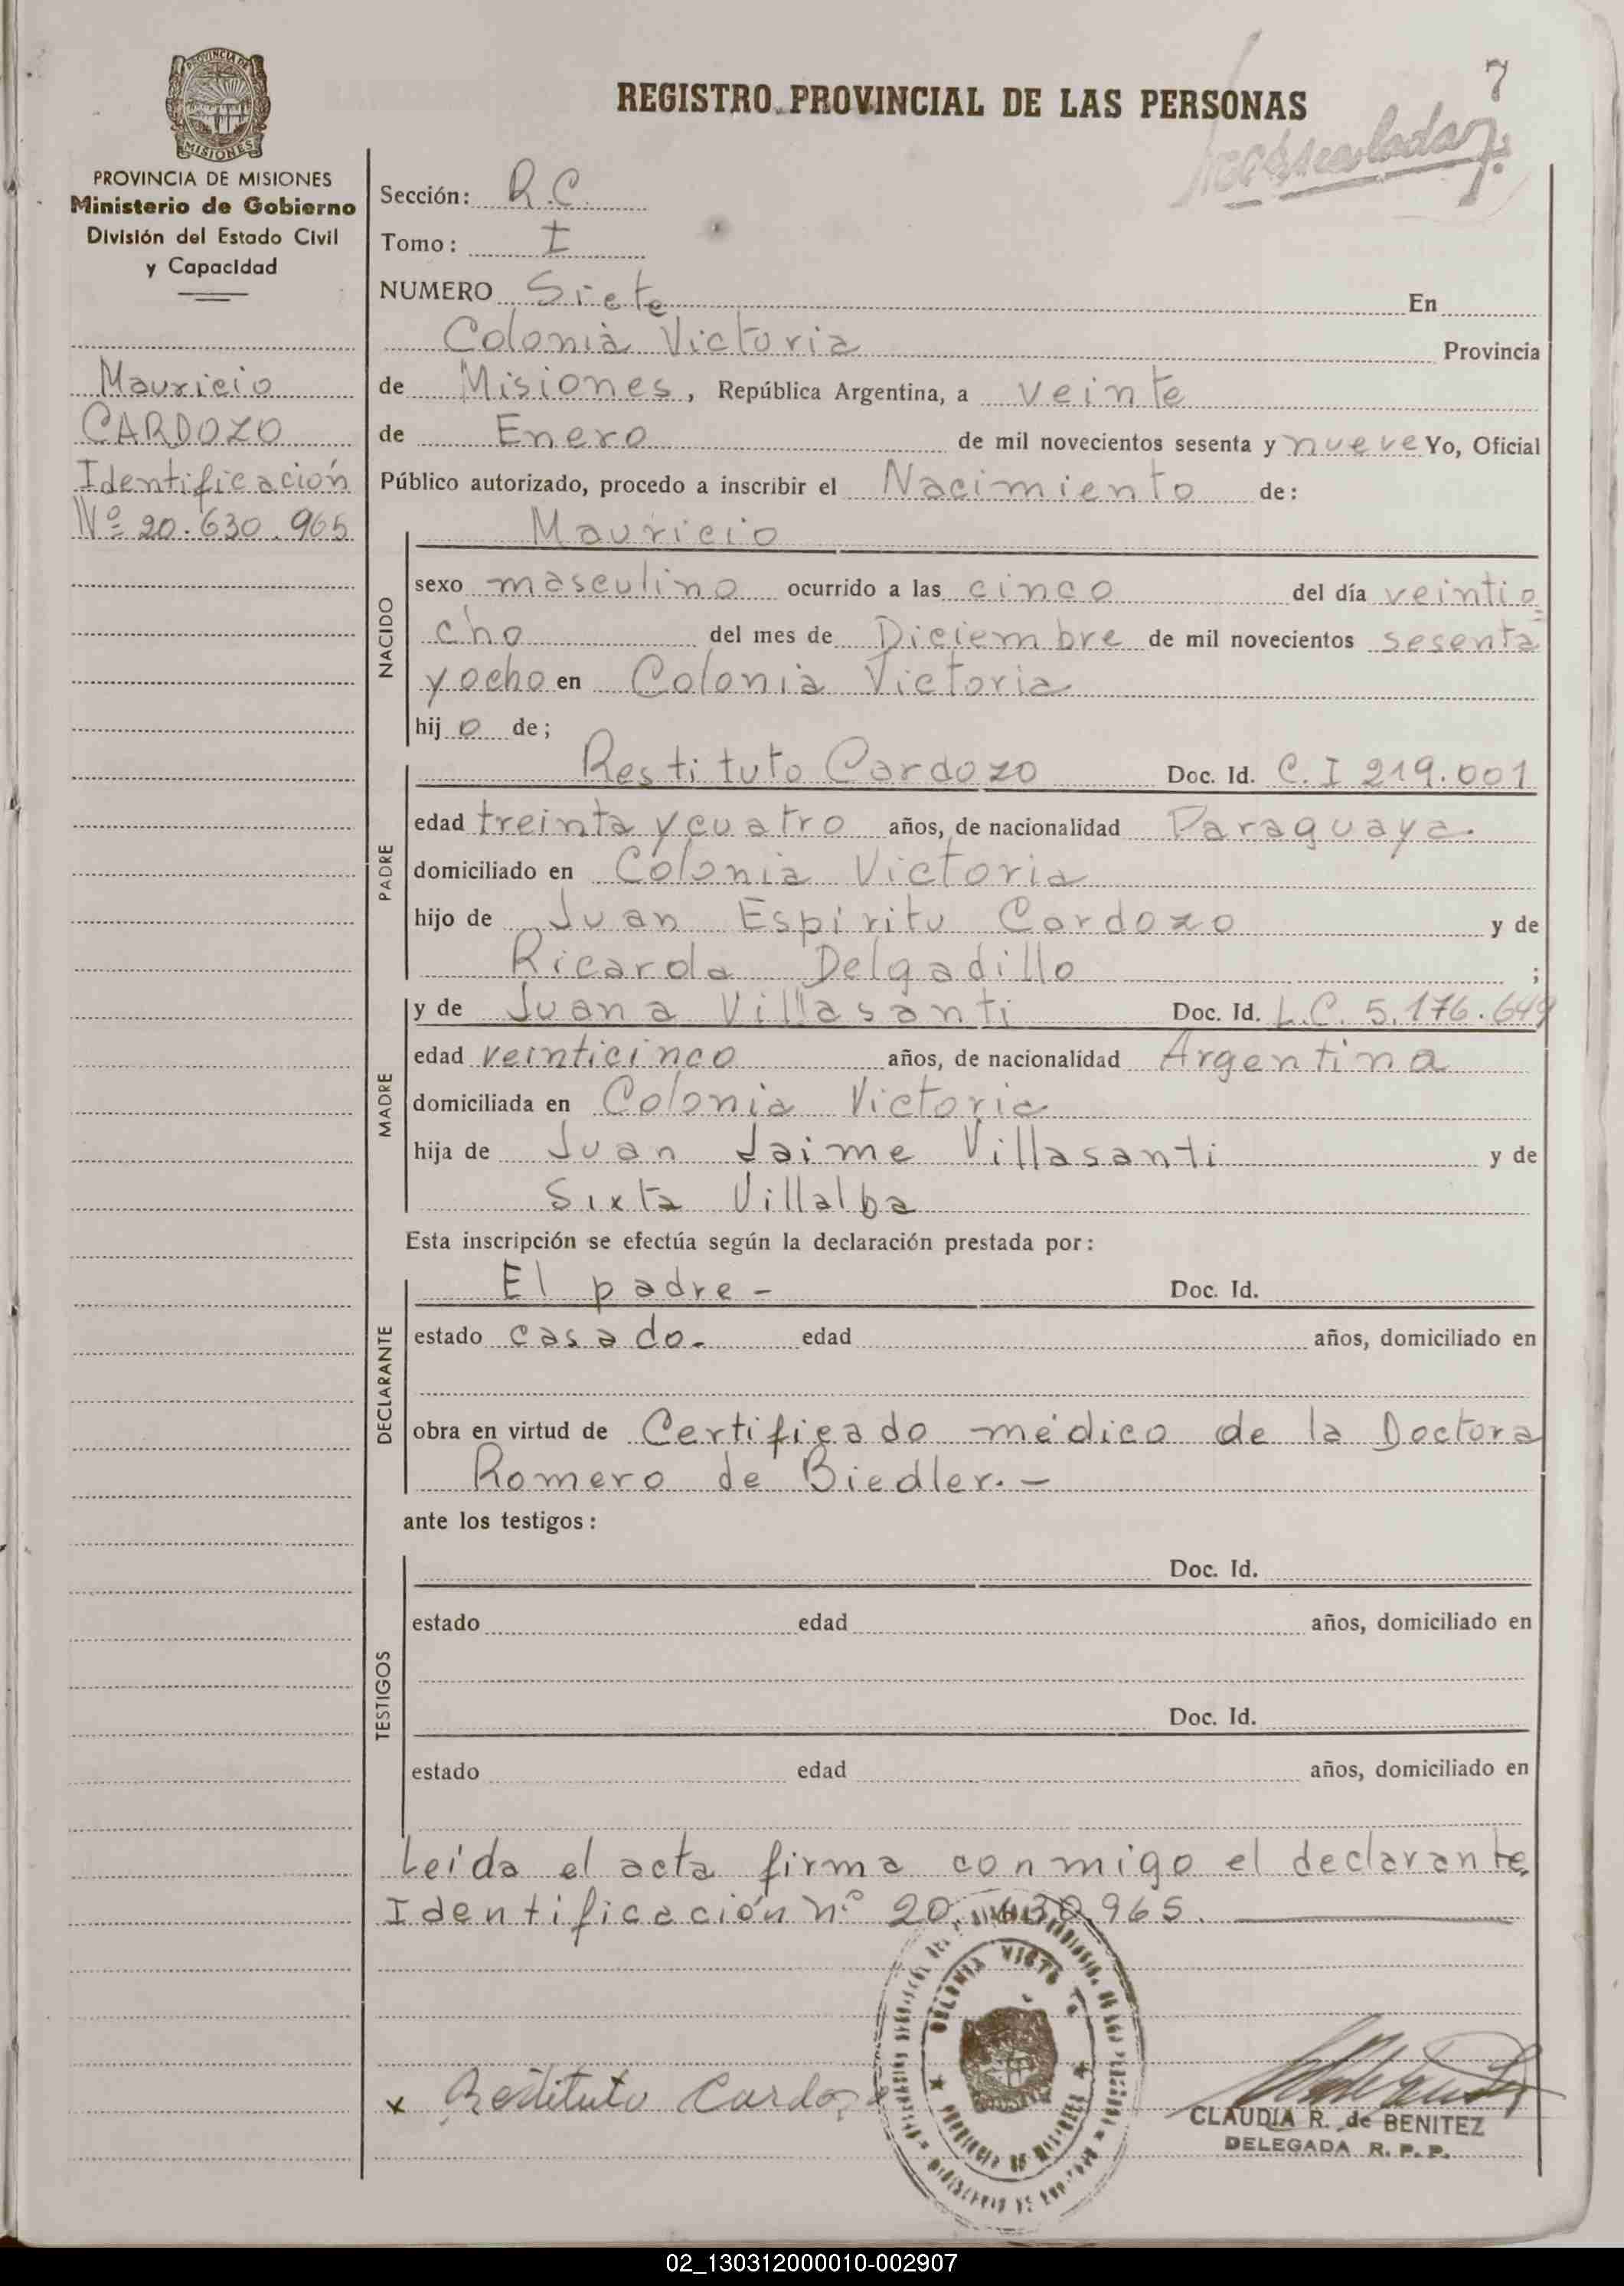 7
PROVINCIA DE
MISIONES
REGISTRO PROVINCIAL DE LAS PERSONAS
PROVINCIA DE MISIONES
Ministerio de Gobierno
División del Estado Civil
y Capacidad
Mauricio
CARDOZO
Identificación
Nº 20.630.965
Sección: R.C.
Tomo: I
NUMERO Siete En
Colonia Victoria Provincia
de Misiones, República Argentina, a veinte
de Enero de mil novecientos sesenta y nueve Yo, Oficial
Público autorizado, procedo a inscribir el Nacimiento de:
NACIDO
Mauricio
sexo masculino ocurrido a las cinco del día veintio=
cho del mes de Diciembre de mil novecientos sesenta
y ocho en Colonia Victoria
hij o de;
PADRE
Restituto Cardozo Doc. Id. C.I 219.001
edad treinta y cuatro años, de nacionalidad Paraguaya.
domiciliado en Colonia Victoria
hijo de Juan Espíritu Cardozo y de
Ricarda Delgadillo ;
MADRE
y de Juana Villasanti Doc. Id. L.C. 5.176.649
edad veinticinco años, de nacionalidad Argentina
domiciliada en Colonia Victoria
hija de Juan Jaime Villasanti y de
Sixta Villalba
Esta inscripción se efectúa según la declaración prestada por:
DECLARANTE
El padre - Doc. Id.
estado casado. edad años, domiciliado en
obra en virtud de Certificado médico de la Doctora
Romero de Biedler. -
ante los testigos:
TESTIGOS
Doc. Id.
estado edad años, domiciliado en
Doc. Id.
estado edad años, domiciliado en
Leída el acta firma conmigo el declarante
Identificación nº 20.630.965.
COLONIA VICTORIA
PROVINCIA DE MISIONES
x Restituto Cardozo
CLAUDIA R. de BENITEZ
DELEGADA R. P. P.
02_130312000010-002907